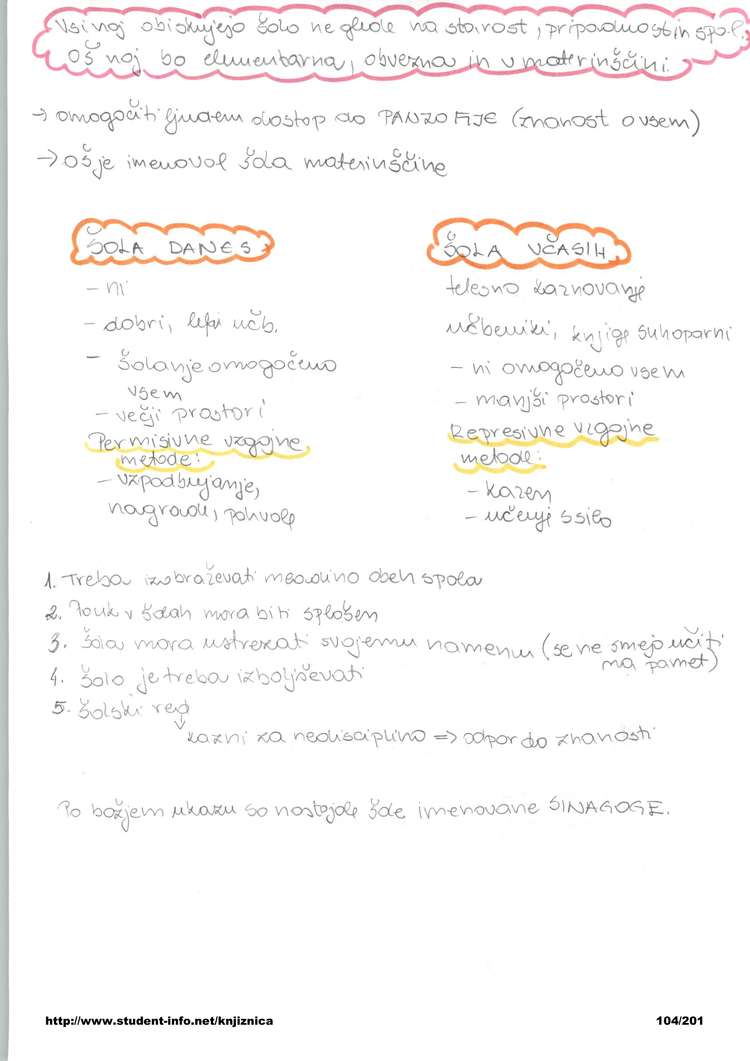 Vsi naj obiskujejo šolo ne glede na starost, pripadnost in spol.
OŠ naj bo elementarna, obvezna in v materinščini.
→ omogočiti ljudem dostop do PANZOFIJE (znanost o vsem)
→ OŠ je imenoval šola materinščine
ŠOLA DANES
- ni
- dobri, lepi učb.
- šolanje omogočeno
vsem
- večji prostori
Permisivne vzgojne
metode:
- vzpodbujanje,
nagrade, pohvale
ŠOLA VČASIH
telesno kaznovanje
učbeniki, knjige suhoparni
- ni omogočeno vsem
- manjši prostori
Represivne vzgojne
metode:
- kazen
- učenje s silo
1. Treba izobraževati mladino obeh spola
2. Pouk v šolah mora biti splošen
3. Šola mora ustrezati svojemu namenu (se ne smejo učiti
na pamet)
4. Šolo je treba izboljševati
5. Šolski red
kazni za nedisciplino => odpor do znanosti
Po božjem ukazu so nastajale šole imenovane SINAGOGE.
http://www.student-info.net/knjiznica
104/201